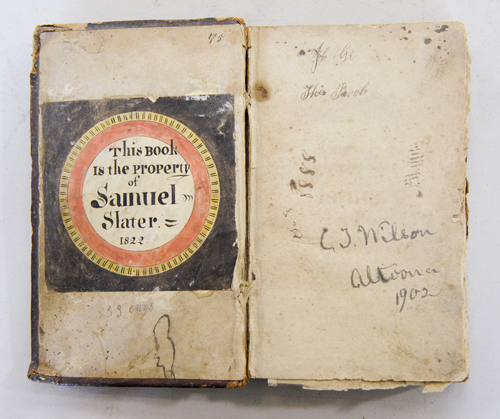 75
This Book
Is the property
of
Samuel
Slater.
1822
This Book
C J Wilson
Altoona
1902